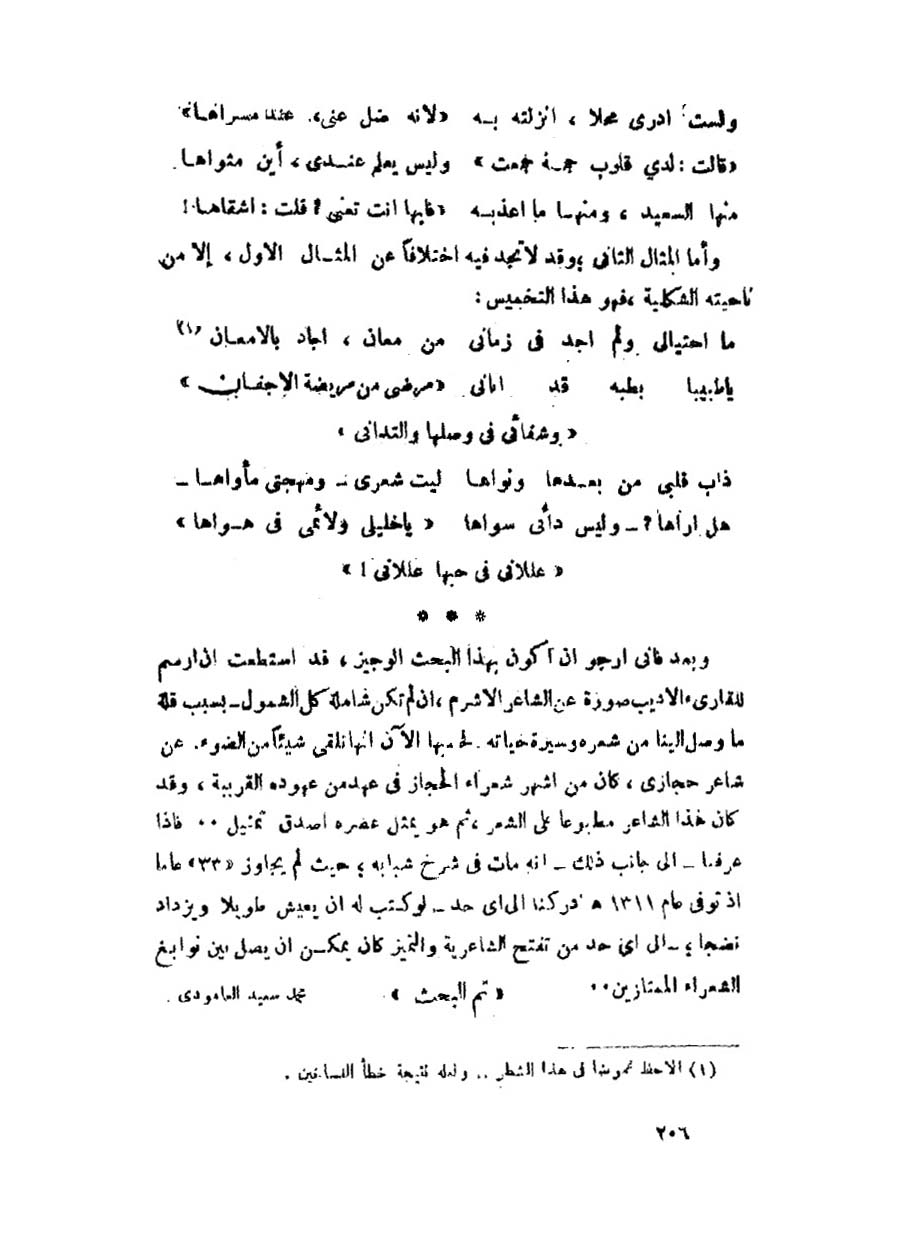 ولست ادرى محلا ، انزلته به «لانه ضل عنى، عند مسراها»
«قالت : لدي قلوب جمة جمعت » وليس يعلم عندى ، أين مثواها
منها السعيد ، ومنها ما اعذبه «فايها انت تعنى ؟ قلت : اشقاها !
وأما المثال الثانى ، وقد لاتجد فيه اختلافاً عن المثال الاول ، إلا من
ناحيته الشكلية ، فهو هذا التخميس :
ما احتيالى ولم اجد فى زمانى من معان ، اجاد بالامعان (١)
ياطبيبا بطبه قد اتانى «مرضى من مريضة الاجفان »
« وشفائى فى وصلها والتدانى »
ذاب قلبى من بعدها ونواها ليت شعرى ـ ومهجتى مأواها ـ
هل اراها ؟ ـ وليس دائى سواها « ياخليلى ولائمى فى هواها »
« عللانى فى حبها عللانى ! »
* * *
وبعد فانى ارجو ان أكون بهذا البحث الوجيز ، قد استطعت ان ارسم
للقارىء الاديب صورة عن الشاعر الاشرم ، ان لم تكن شاملة كل الشمول ـ بسبب قلة
ما وصل الينا من شعره وسيرة حياته . فحسبها الآن انها تلقى شيئاً من الضوء . عن
شاعر حجازى ، كان من اشهر شعراء الحجاز فى عهد من عهوده القريبة ، وقد
كان هذا الشاعر مطبوعا على الشعر ، ثم هو يمثل عصره اصدق تمثيل .. فاذا
عرفنا ـ الى جانب ذلك ـ انه مات فى شرخ شبابه ؛ حيث لم يجاوز «٣٣» عاما
اذ توفى عام ١٣١١ هـ ادركنا الى اى حد ـ لو كتب له ان يعيش طويلا ويزداد
نضجا ؛ ـ الى اى حد من تفتح الشاعرية والتميز كان يمكن ان يصل بين نوابغ
الشعراء الممتازين .. « تم البحث » . محمد سعيد العامودى .
(١) الاحظ غموضا فى هذا الشطر .. ولعله نتيجة خطأ النساخين .
٢٠٦